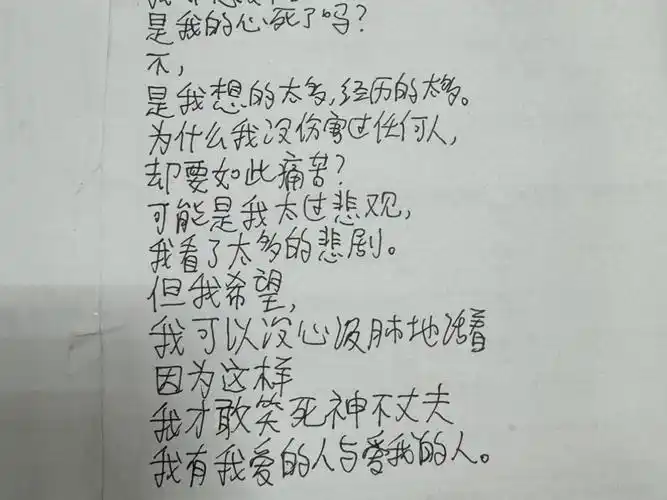 是我的心死了吗?
不,
是我想的太多,经历的太多。
为什么我没伤害过任何人,
却要如此痛苦?
可能是我太过悲观,
我看了太多的悲剧。
但我希望,
我可以没心没肺地活着
因为这样
我才敢笑死神不丈夫
我有我爱的人与爱我的人。